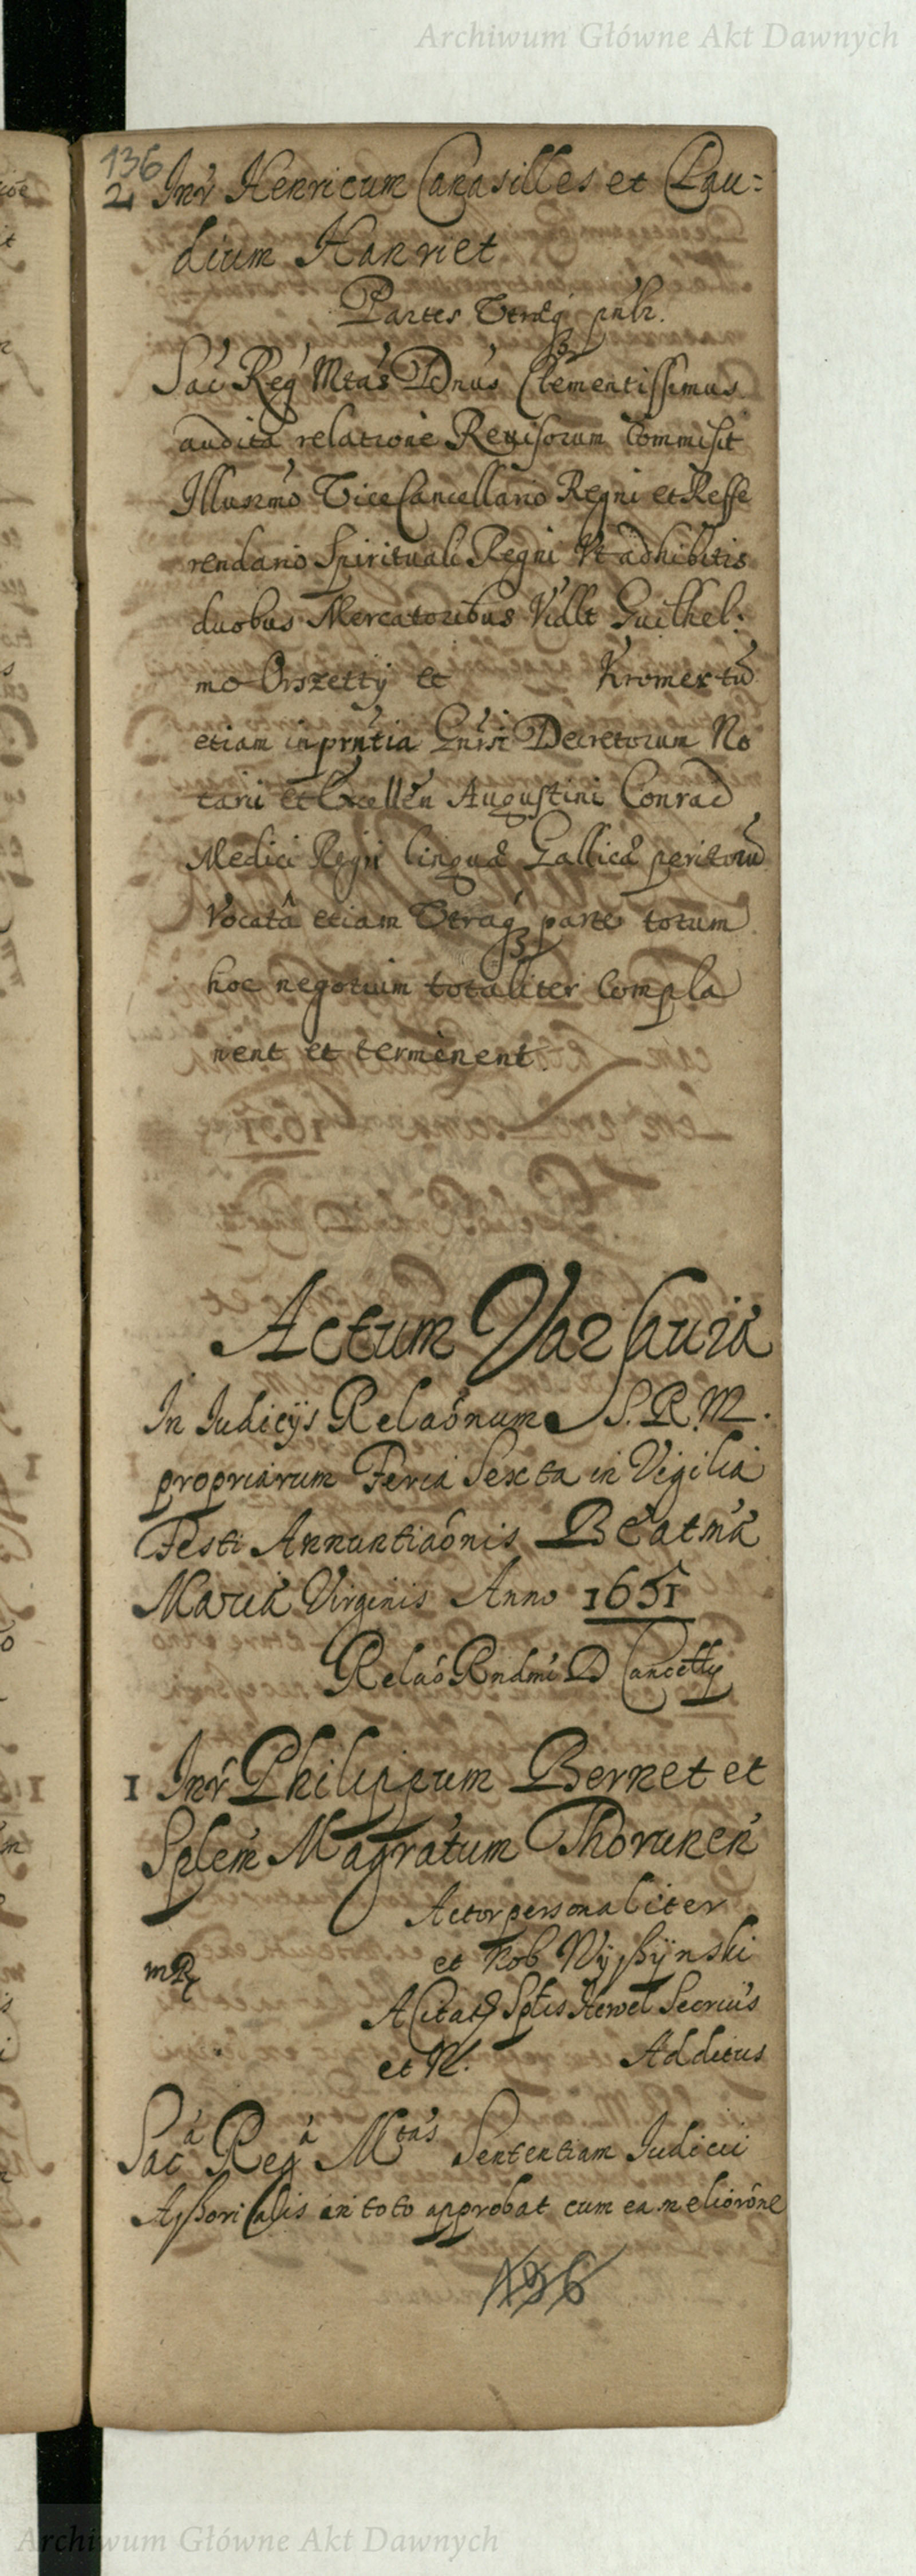 Archiwum Główne Akt Dawnych
136
2 Inr Henricum Canasilles et Clau=
dium Hanriet
Partes Utraq
Sac Reg Mtas Dnus Clementissimus
audita relatione Reuisorum Commisit
Illusmo ViceCancellario Regni et Reffe
rendario Spirituali Regni Vt adhibitis
duobus Mercatoribus Vidlt Guilhel:
mo Orszettÿ et Kromer tu
etiam in prntia Decretorum No
tarii et Excellen Augustini Conrad
Medici Regii linguæ Gallicæ peritoru
Vocatâ etiam Utraq parte totum
hoc negotium totaliter Compla
nent et terminent.
Actum Varsauiæ
In Iudicÿs Relaonum S. R. M.
propriarum Feria Sexta in Vigilia
Festi Annuntiaonis Beatmæ
Mariæ Virginis Anno 1651
Relao Rndmi D Cancelly
1 Inr Philippum Bernet et
Splem Magratum Thorunen
Actor personaliter
et Nob Wÿssÿnski
mR
A Citat Spts Hewel Secrius
et N. Additus
Sac Reg Mtas Sententiam Iudicii
Assorialis in toto approbat cum ea melioröne
136
Archiwum Główne Akt Dawnych